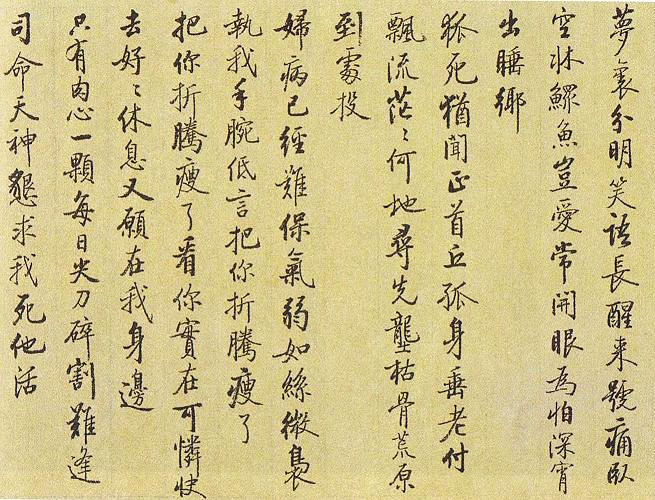 夢裏分明笑語長醒來號痛臥
空牀鰥魚豈愛常開眼為怕深宵
出睡鄉
狐死猶聞正首丘孤身垂老付
飄流茫〻何地尋先壟枯骨荒原
到處投
婦病已經難保氣弱如絲微裊
執我手腕低言把你折騰瘦了
把你折騰瘦了看你實在可憐快
去好〻休息又願在我身邊
只有肉心一顆每日尖刀碎割難逢
司命天神懇求我死他活